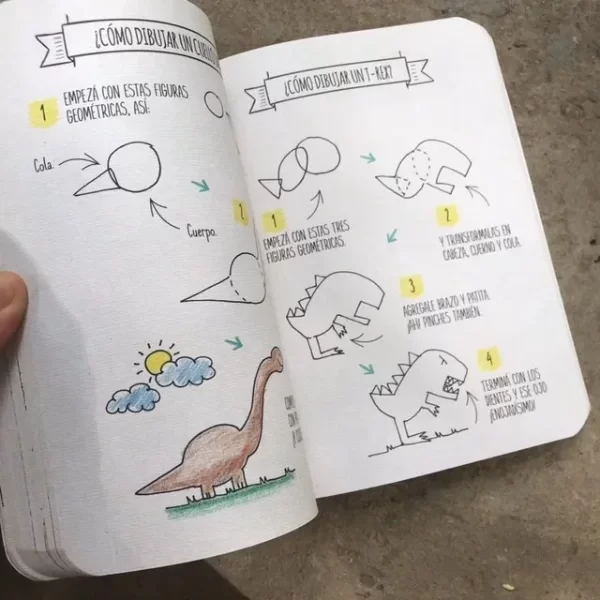 ¿CÓMO DIBUJAR UN CUELLO
1
EMPEZÁ CON ESTAS FIGURAS
GEOMÉTRICAS, ASÍ:
Cola.
Cuerpo.
2
¿CÓMO DIBUJAR UN T-REX?
1
EMPEZÁ CON ESTAS TRES
FIGURAS GEOMÉTRICAS.
2
Y TRANSFORMALAS EN
CABEZA, CUERNO Y COLA.
3
AGREGALE BRAZO Y PATITA.
¡AH! PINCHES TAMBIÉN.
4
TERMINÁ CON LOS
DIENTES Y ESE OJO
¡ENOJADÍSIMO!